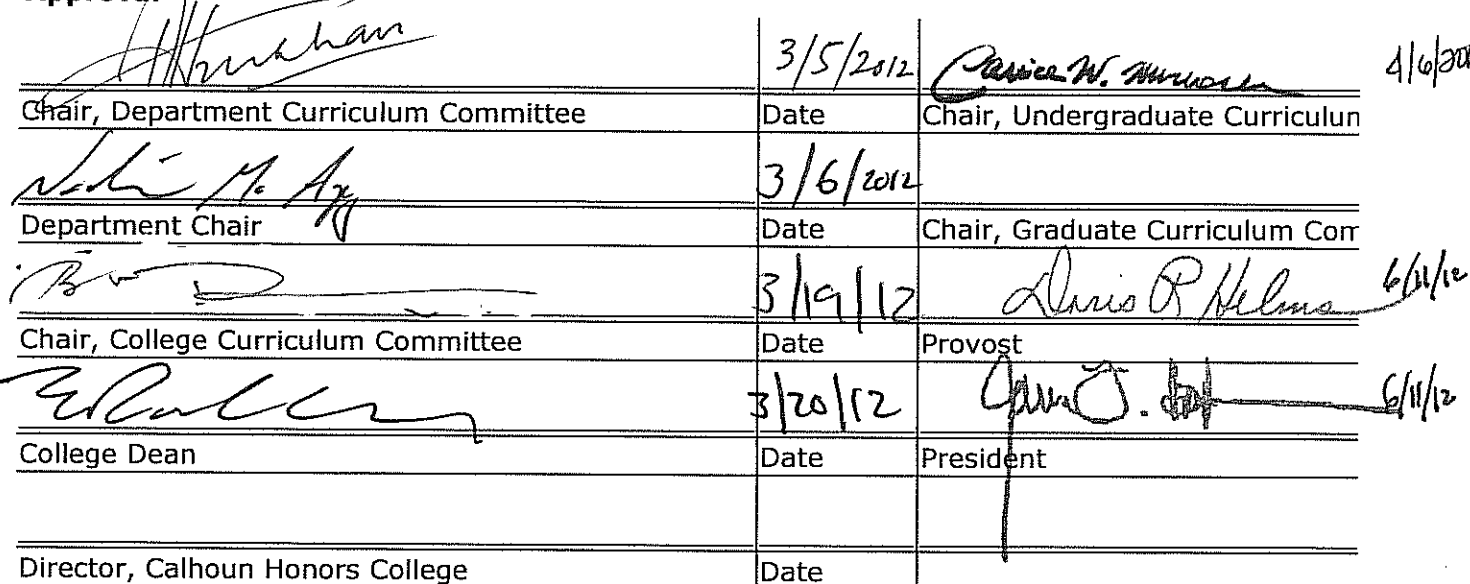 3/5/2012
Chair, Department Curriculum Committee Date Chair, Undergraduate Curriculun
3/6/2012
Department Chair Date Chair, Graduate Curriculum Com
3/19/12 Doris R Helms 6/11/12
Chair, College Curriculum Committee Date Provost
3/20/12 6/11/12
College Dean Date President
Director, Calhoun Honors College Date